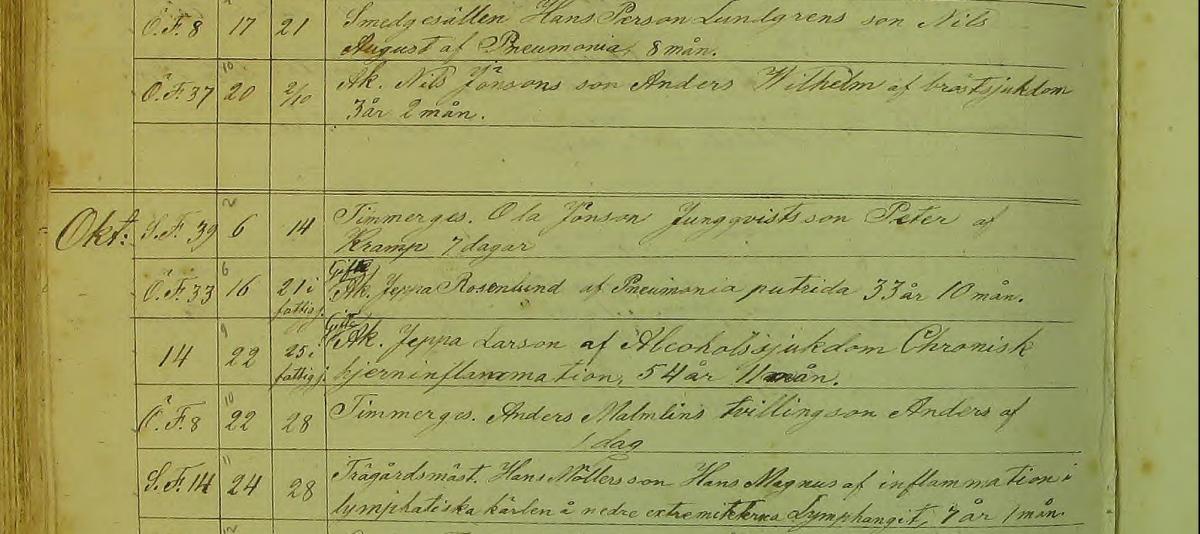 Ö.F. 8 17 21 Smedgesällen Hans Person Lundgrens son Nils
August af Pneumonia, 8 mån.
10
Ö.F. 37 20 2/10 Åk. Nils Jönsons son Anders Wilhelm af bröstsjukdom
3 år 2 mån.
Okt: S.F. 39 6 14 Timmerges. Ola Jönson Jungqvists son Peter af
Kramp 7 dagar
6 Gifte
Ö.F. 33 16 21 i Åk. Jeppa Rosenlund af Pneumonia putrida 33 år 10 mån.
fattigj.
9 Gifte
14 22 25 i Åk. Jeppa Larson af Alcoholssjukdom Chronisk
fattigj. hjerninflammation, 54 år 11 mån.
10
Ö.F. 8 22 28 Timmerges. Anders Malmlins tvillingson Anders af
1 dag
11
S.F. 14 24 28 Trägårdsmäst. Hans Möllers son Hans Magnus af inflammation i
lymphatiska kärlen å nedre extremiteterna Lymphangit, 7 år 1 mån.
12